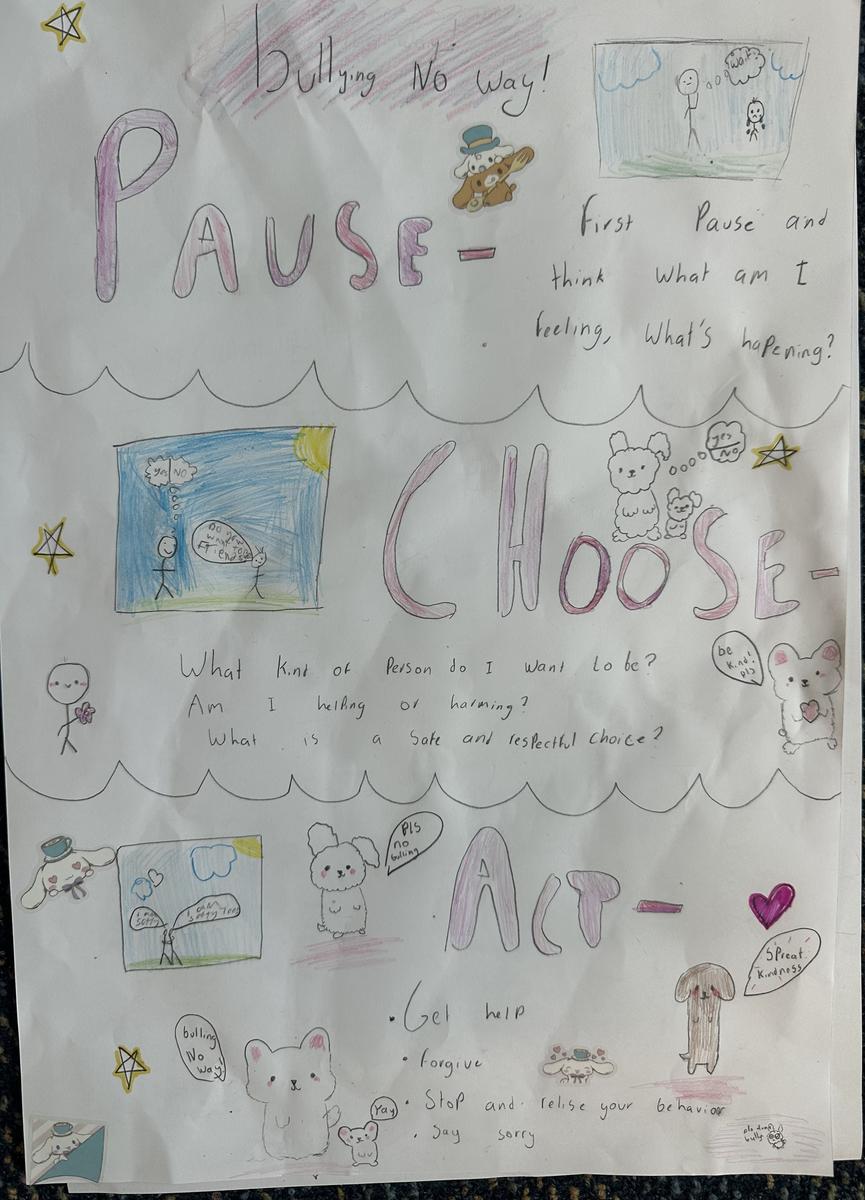 bullying No way!
wait
PAUSE-
First Pause and
think what am I
feeling, What's hapening?
yes NO
Do you
want to be
Friends
yes
No
CHOOSE-
What kind of Person do I want to be?
Am I helping or harming?
What is a safe and respectful choice?
be
kind!
pls
pls
no
bulling
ACT-
i am
sorry
I am
sorry too
Spreat
kindness
• Get help
• Forgive
• Stop and relise your behavior
• Say sorry
bulling
No
way!
Yay
pls dont
bully